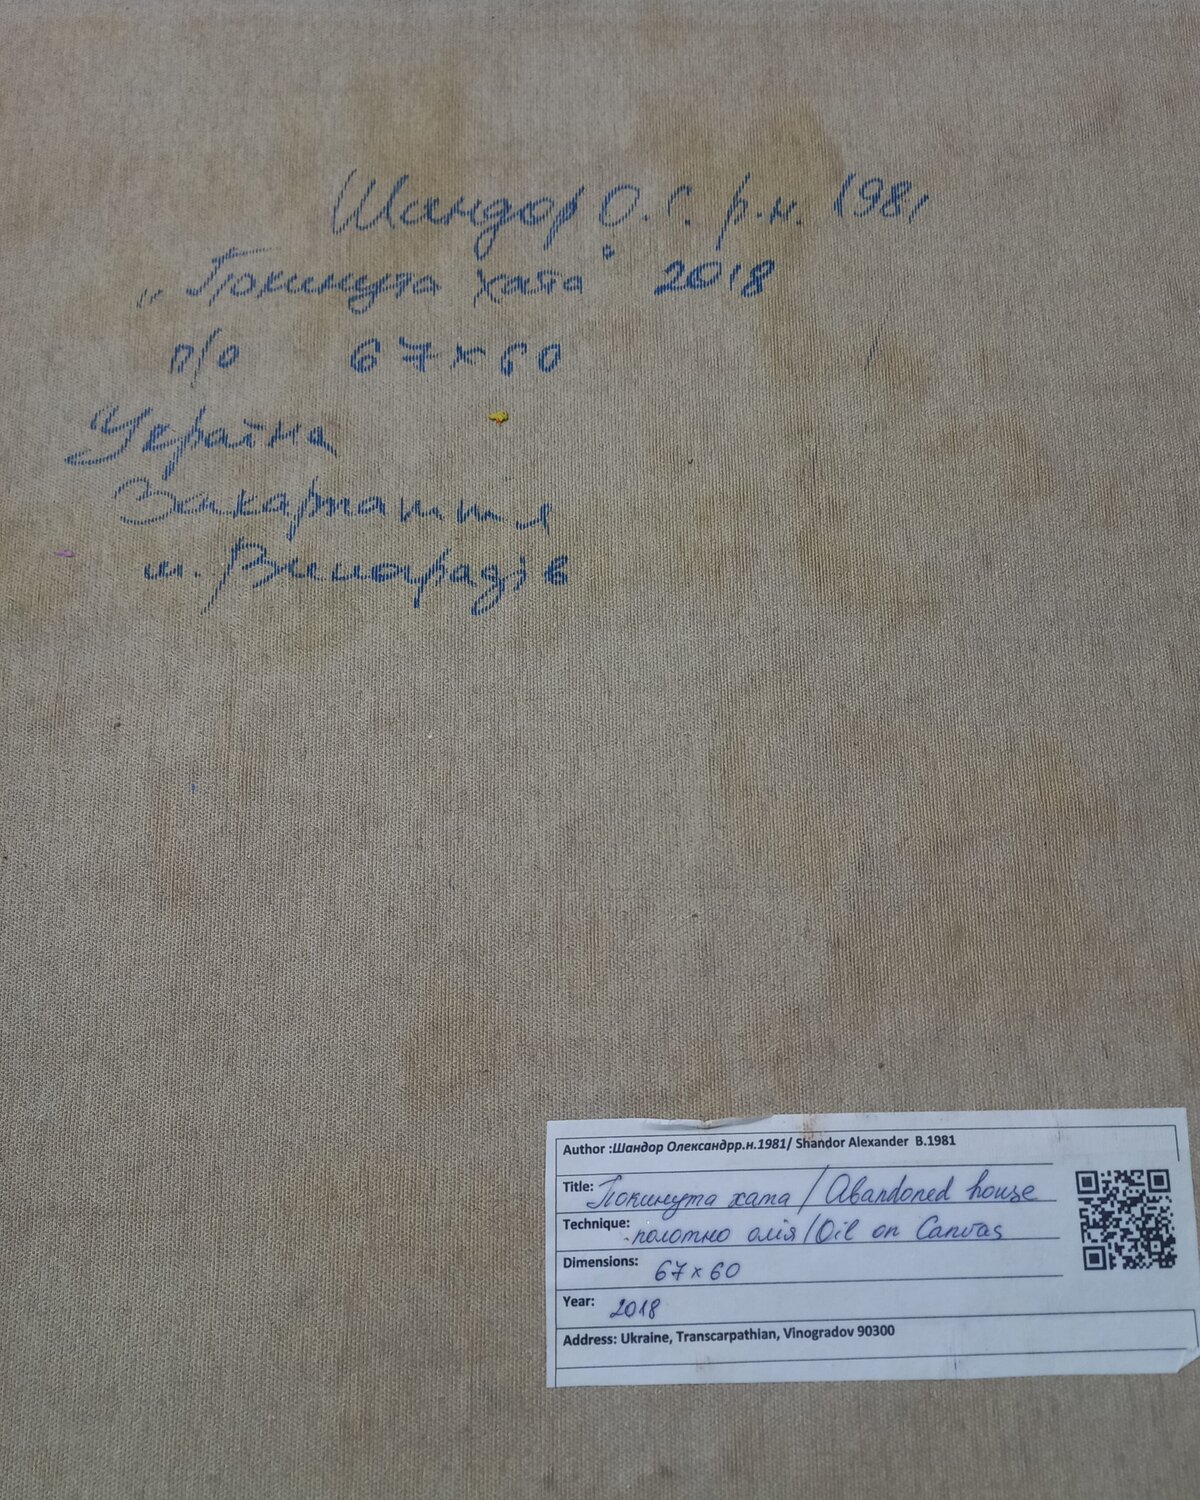 Шандор О.С. р.н. 1981
„Покинута хата" 2018
п/о 67×60
Україна
Закарпаття
м. Виноградів
Author :Шандор Олександрр.н.1981/ Shandor Alexander B.1981
Title: Покинута хата / Abandoned house
Technique: полотно олія / Oil on Canvas
Dimensions: 67×60
Year: 2018
Address: Ukraine, Transcarpathian, Vinogradov 90300